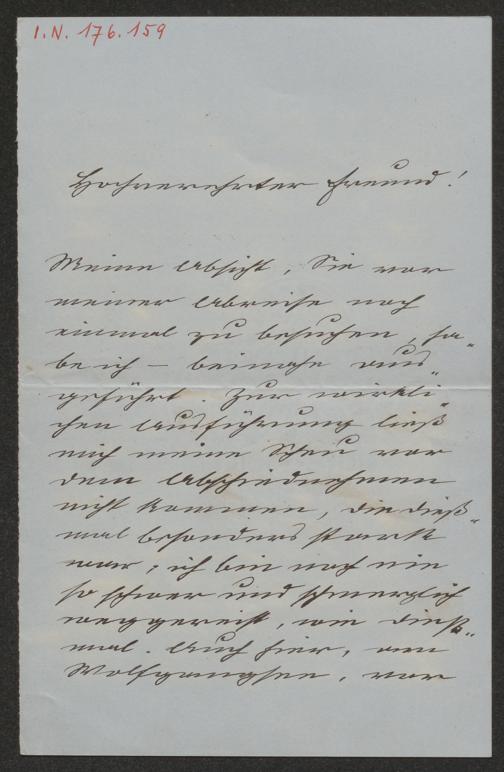 I.N. 176.159
Hochverehrter Freund!
Meine Absicht, Sie vor
meiner Abreise noch
einmal zu besuchen, ha-
be ich – beinahe aus-
geführt. Zur wirkli-
chen Ausführung ließ
mich meine Scheu vor
dem Abschiednehmen
nicht kommen, die dieß-
mal besonders stark
war; ich bin noch nie
so schwer und schmerzlich
weggereist, wie dieß-
mal. Auch hier, am
Wolfgangsee, war